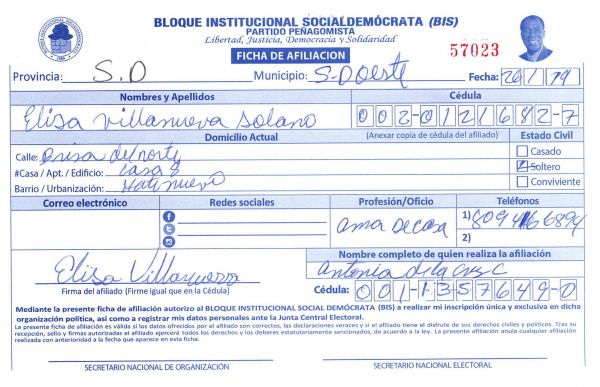 BLOQUE INSTITUCIONAL SOCIALDEMÓCRATA (BIS)
PARTIDO PEÑAGOMISTA
Libertad, Justicia, Democracia y Solidaridad
FICHA DE AFILIACION
57023
Provincia: S.D Municipio: S-D oeste Fecha: 26/ /19
Nombres y Apellidos Cédula
Elisa Villanueva Solano 002-0121682-7
Domicilio Actual (Anexar copia de cédula del afiliado) Estado Civil
Calle: Brisa del norte
#Casa / Apt. / Edificio: Casa 8
Barrio / Urbanización: Hato nuevo
Casado
Soltero
Conviviente
Correo electrónico Redes sociales Profesión/Oficio Teléfonos
ama de casa
1) 809
2)
Elisa Villanueva
Firma del afiliado (Firme igual que en la Cédula)
Nombre completo de quien realiza la afiliación
Antonia de la Cruz C
Cédula: 001-1357649-0
Mediante la presente ficha de afiliación autorizo al BLOQUE INSTITUCIONAL SOCIAL DEMÓCRATA (BIS) a realizar mi inscripción única y exclusiva en dicha
organización política, así como a registrar mis datos personales ante la Junta Central Electoral.
La presente ficha de afiliación es válida si los datos ofrecidos por el afiliado son correctos, las declaraciones veraces y si el afiliado tiene el disfrute de sus derechos civiles y políticos. Tras su
recepción, sello y firmas autorizadas el afiliado ejercerá todos los derechos y los deberes estatutariamente sancionados, de acuerdo a la ley. La presente afiliación anula cualquier afiliación
realizada con anterioridad a la fecha que aparece en esta ficha.
SECRETARIO NACIONAL DE ORGANIZACIÓN SECRETARIO NACIONAL ELECTORAL